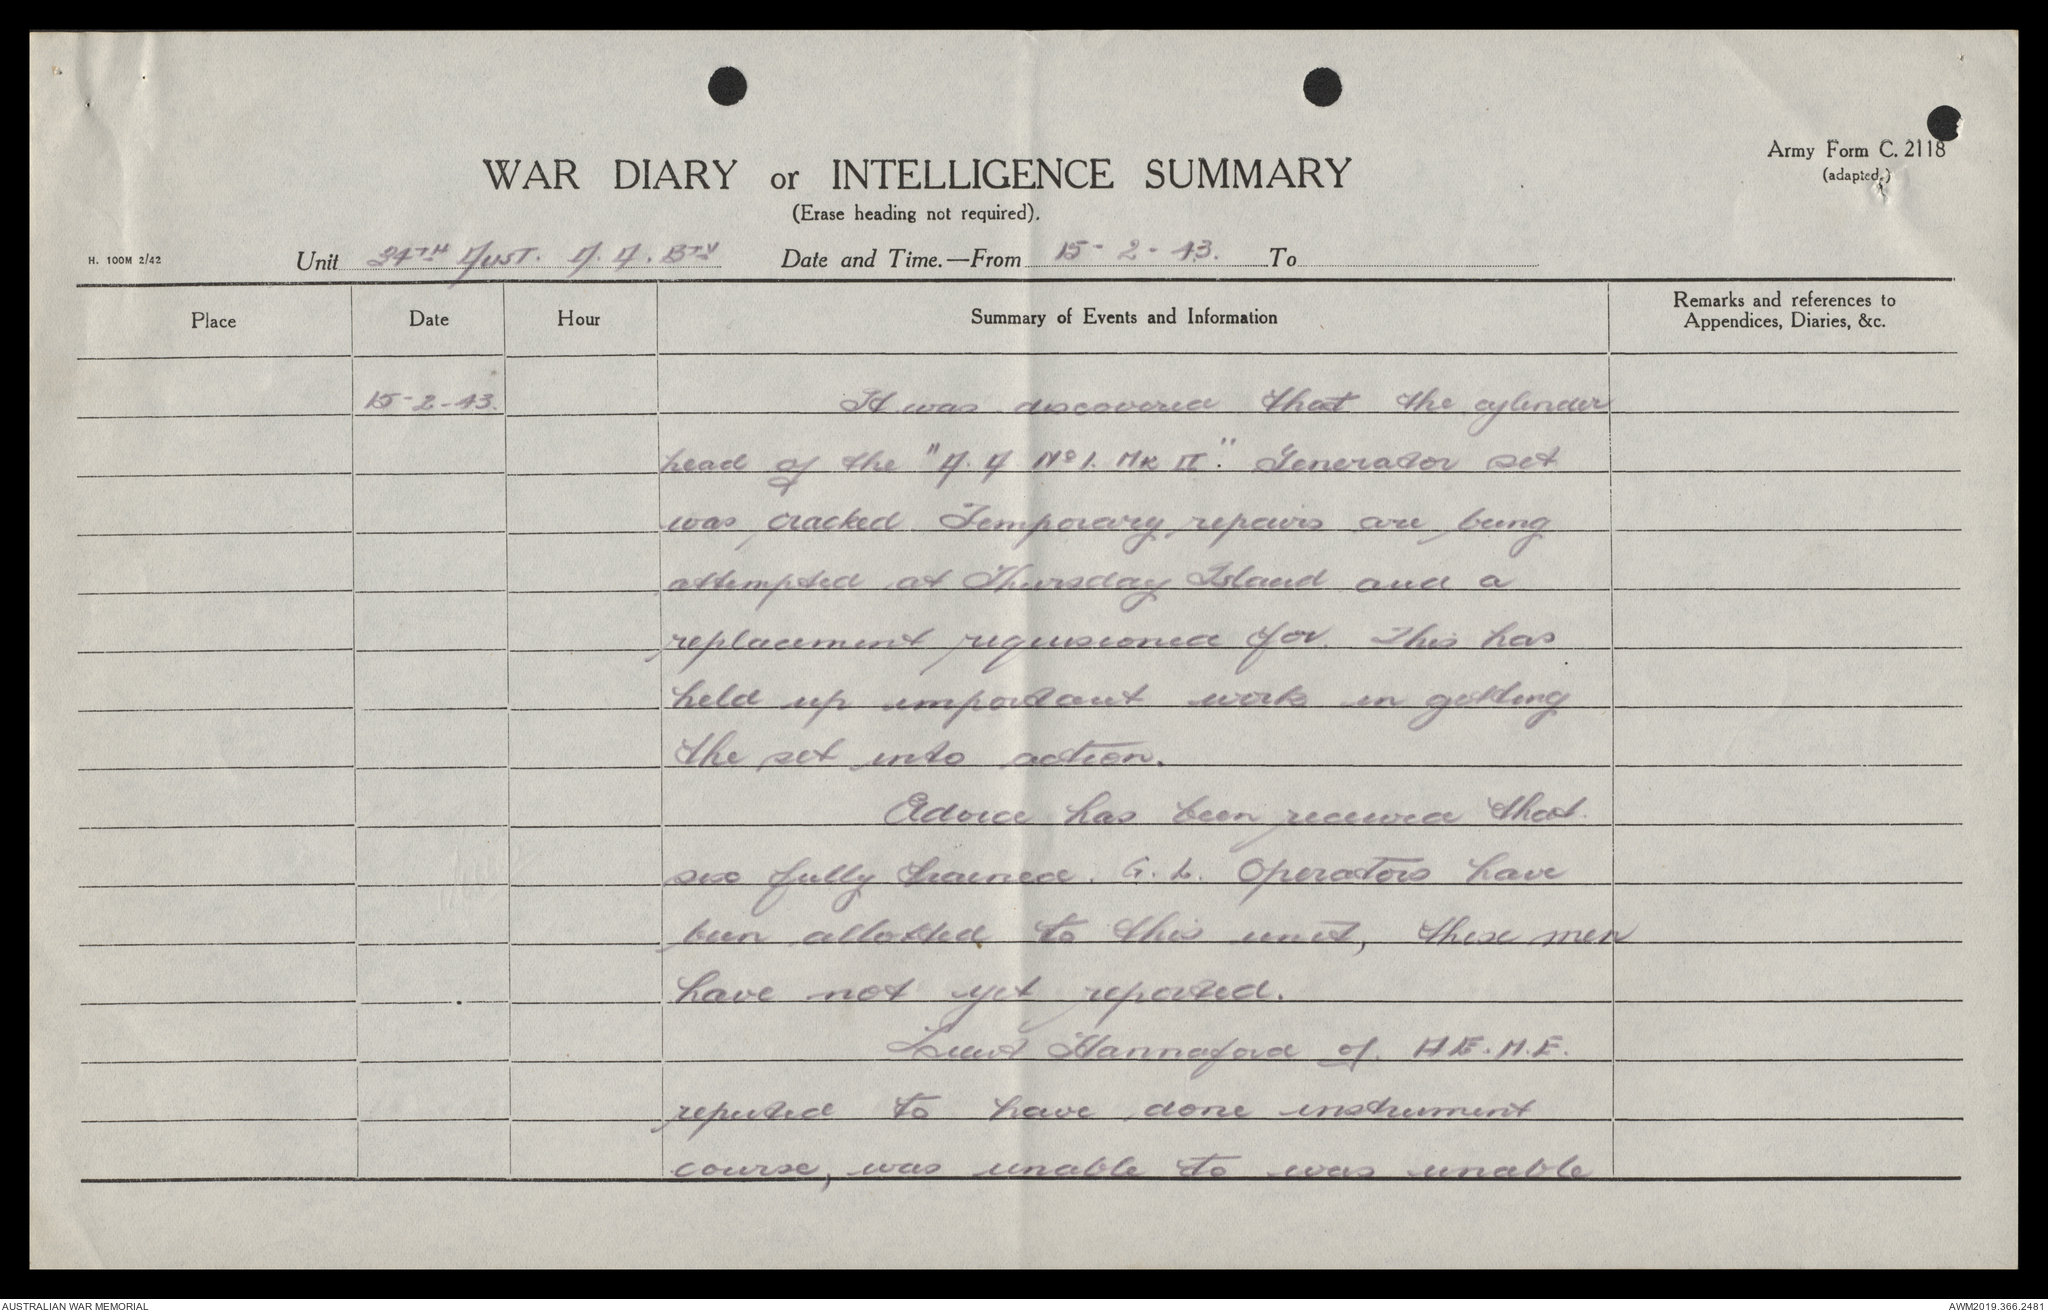 Army Form C. 2118
(adapted.)
WAR DIARY or INTELLIGENCE SUMMARY
(Erase heading not required).
H. 100M 2/42
Unit 34TH AUST. A. A. BTY Date and Time.—From 15-2-43. To
Place Date Hour Summary of Events and Information Remarks and references to
Appendices, Diaries, &c.
15-2-43. It was discovered that the cylinder
head of the "A. A No 1. MK II." Generator set
was cracked. Temporary repairs are being
attempted at Thursday Island and a
replacement requisioned for. This has
held up important work in getting
the set into action.
Advice has been received that
six fully trained. G. L. Operators have
been allotted to this unit, these men
have not yet reported.
Lieut Hannaford of. A.E.M.E.
reputed to have done instrument
course, was unable to was unable
AUSTRALIAN WAR MEMORIAL
AWM2019.366.2481